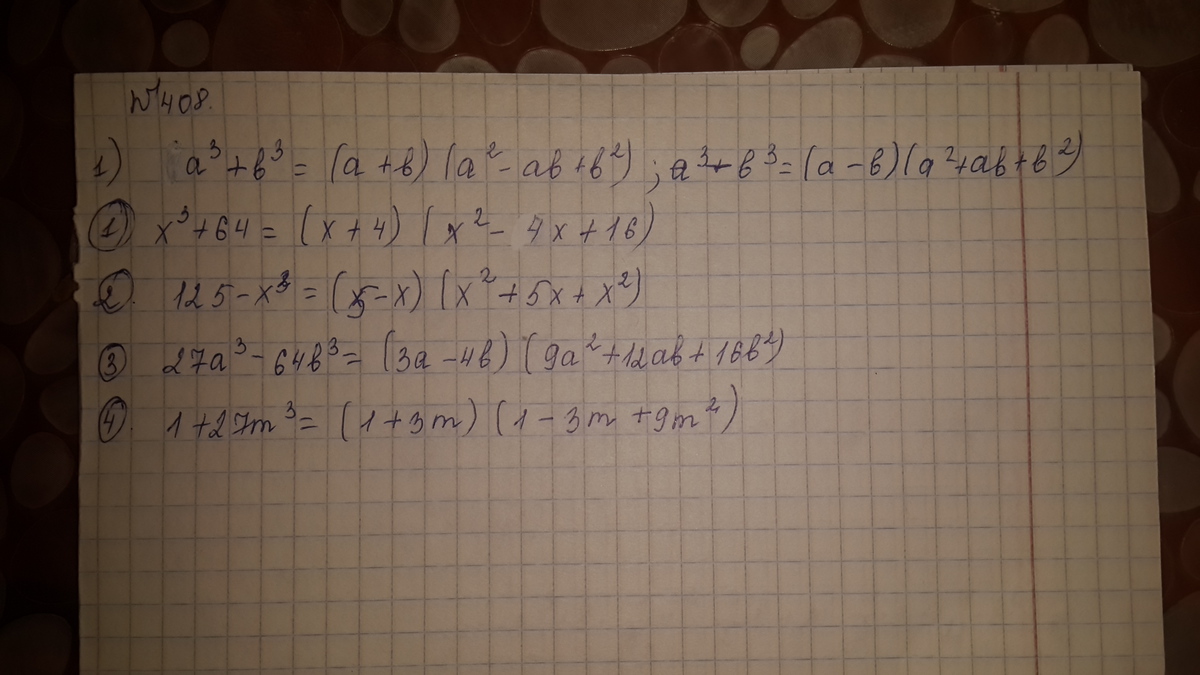 №408.
1) a³+b³ = (a+b)(a²-ab+b²); a³-b³=(a-b)(a²+ab+b²)
1) x³+64 = (x+4)(x²-4x+16)
2. 125-x³ = (5-x)(x²+5x+x²)
3 27a³-64b³= (3a-4b)(9a²+12ab+16b²)
4. 1+27m³= (1+3m)(1-3m+9m²)